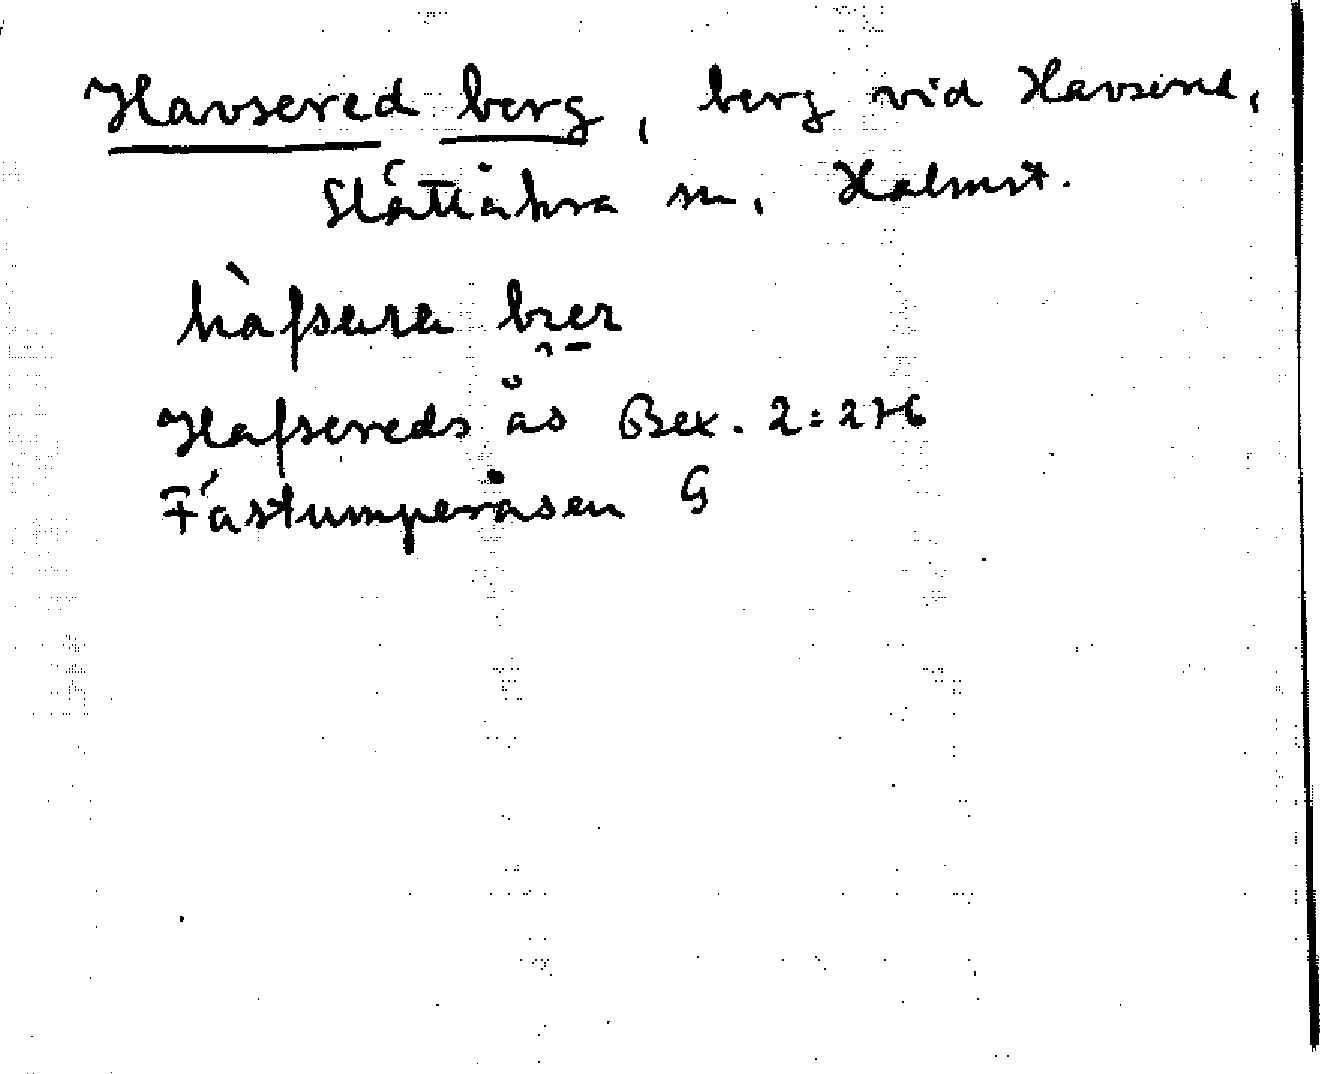 Havsered berg, berg vid Havsered,
Slättåkra sn, Halmst.
hàfsara bær
Hafsereds ås Bex. 2:276
Fåstumperåsen G